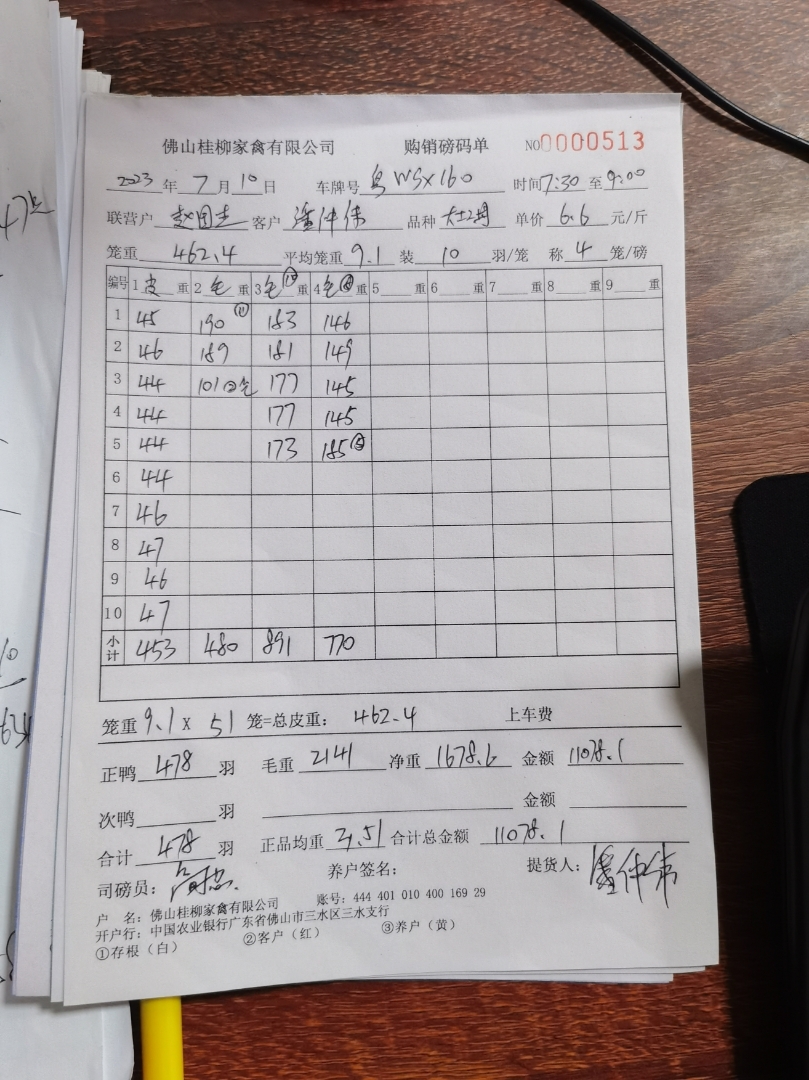 佛山桂柳家禽有限公司 购销磅码单 NO0000513
2023年7月10日 车牌号 粤WSX160 时间7:30至9:00
联营户 客户 潘仲伟 品种 单价 6.6 元/斤
笼重 462.4 平均笼重 9.1 装 10 羽/笼 称 4 笼/磅
编号 1 皮 重 2 毛 重 3 毛 重 4 毛 重 5 重 6 重 7 重 8 重 9 重
1 45 190⑪ 183 146
2 46 189 181 149
3 44 101 177 145
4 44 177 145
5 44 173 185
6 44
7 46
8 47
9 46
10 47
小计 453 480 891 770
笼重 9.1 X 51 笼=总皮重: 462.4 上车费
正鸭 478 羽 毛重 2141 净重 1678.6 金额 11078.1
次鸭 羽 金额
合计 478 羽 正品均重 3.51 合计总金额 11078.1
司磅员: 养户签名: 提货人: 潘仲伟
户 名: 佛山桂柳家禽有限公司 账号: 444 401 010 400 169 29
开户行: 中国农业银行广东省佛山市三水区三水支行
①存根(白) ②客户(红) ③养户(黄)